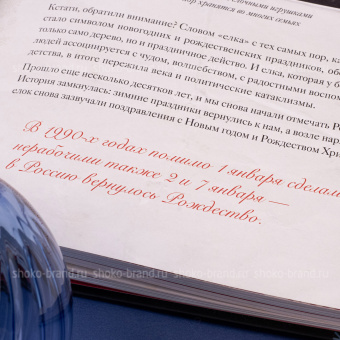 ёлочными игрушками
хранятся во многих семьях
Кстати, обратили внимание? Словом «елка» с тех самых пор, ка
стало символом новогодних и рождественских праздников, обо
только само дерево, но и праздничное действо. И елка, которая у б
людей ассоциируется с чудом, волшебством, с радостными воспом
детства, в итоге пережила века и политические катаклизмы.
Прошло еще несколько десятков лет, и мы снова начали отмечать Ро
История замкнулась: зимние праздники вернулись к нам, а возле нар
елок снова зазвучали поздравления с Новым годом и Рождеством Хри
В 1990-х годах помимо 1 января сделал
нерабочими также 2 и 7 января —
в Россию вернулось Рождество.
shoko-brand.ru shoko-brand.ru shoko-brand.ru shoko-brand.ru